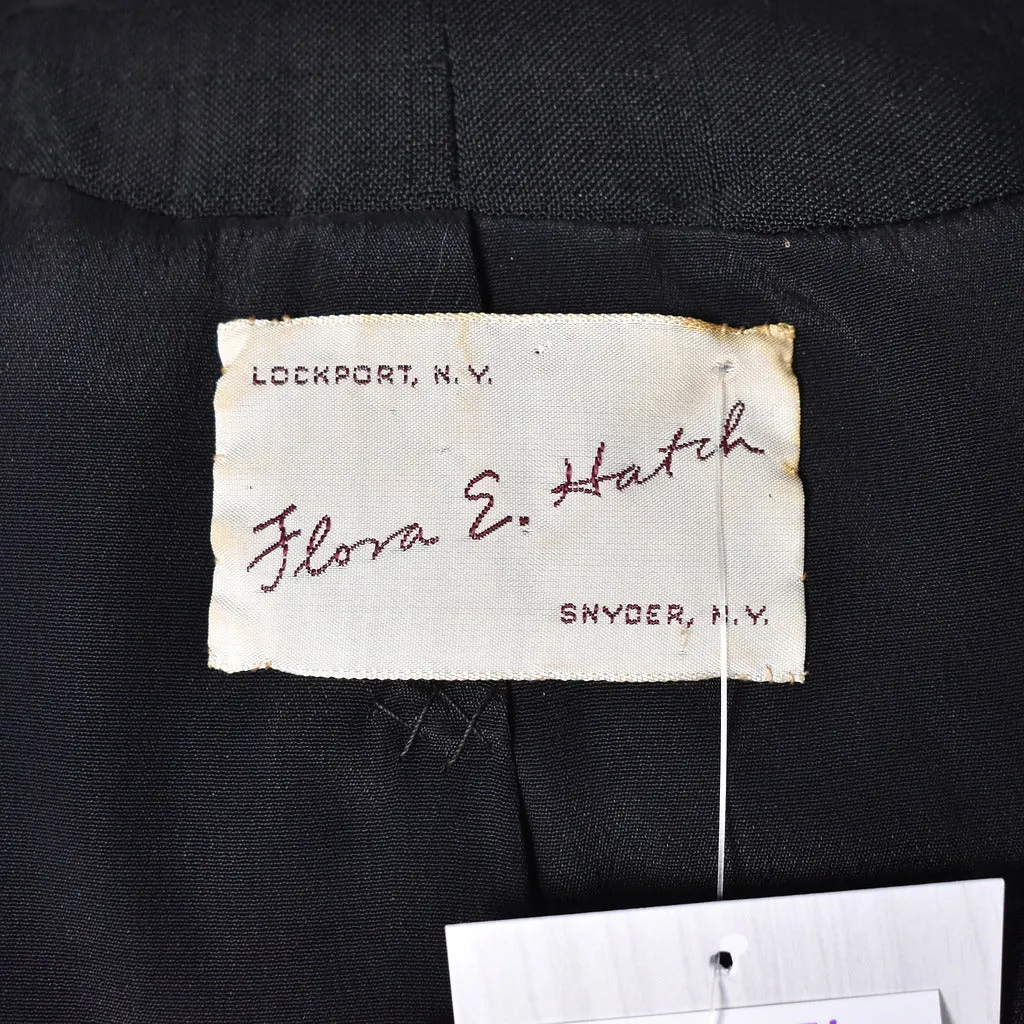 LOCKPORT, N.Y.
Flora E. Hatch
SNYDER, N.Y.